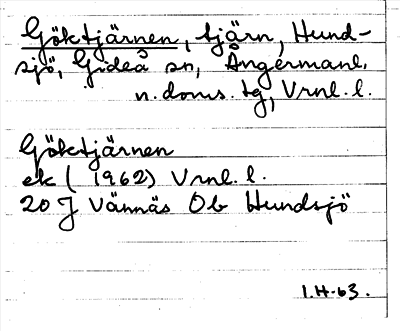 Göktjärnen, tjärn, Hund-
sjö, Gideå sn, Ångermanl.
n. doms. tg, Vrnl. l.
Göktjärnen
ek (1962) Vrnl. l.
20 J Vännäs Ob Hundsjö
I.H-63.